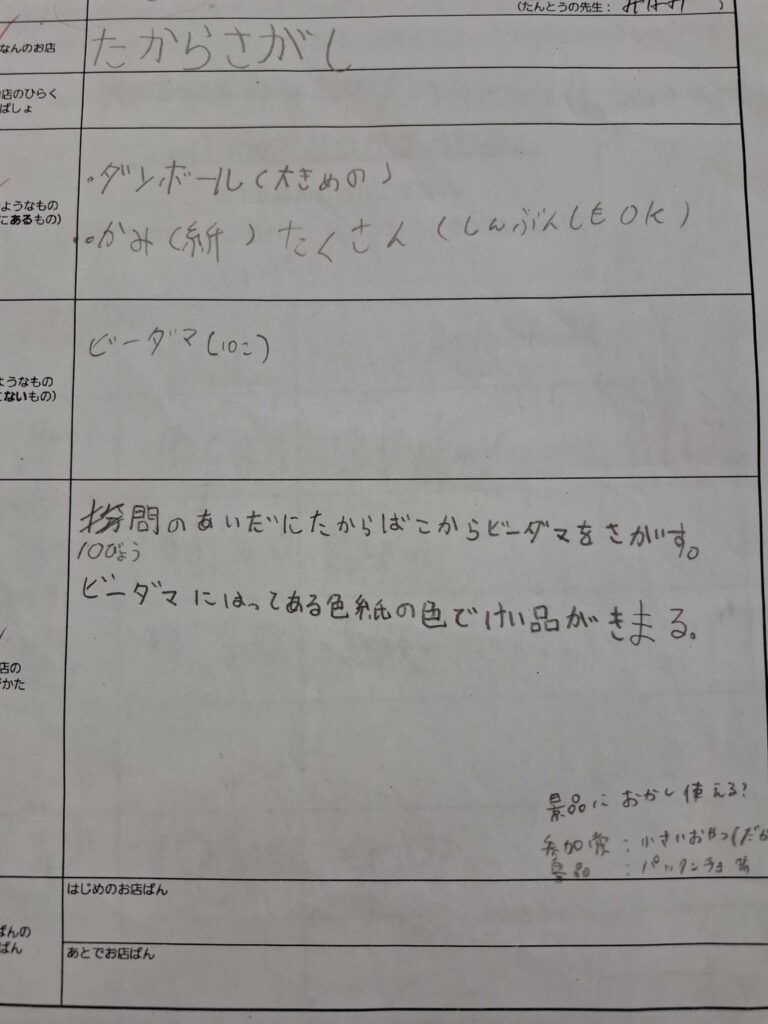 (たんとうの先生: )
なんのお店
たからさがし
店のひらく
ばしょ
ようなもの
にあるもの)
・ダンボール(大きめの)
・かみ(紙)たくさん(しんぶんしもOK)
ようなもの
ないもの)
ビーダマ(10こ)
のあいだにたからばこからビーダマをさがす。
10びょう
ビーダマにはってある色紙の色でけい品がきまる。
店の
かた
景品におかし使える?
参加賞:小さいおやつ(だが
景品:パックンチョ等
はじめのお店ばん
ばんの
ばん
あとでお店ばん